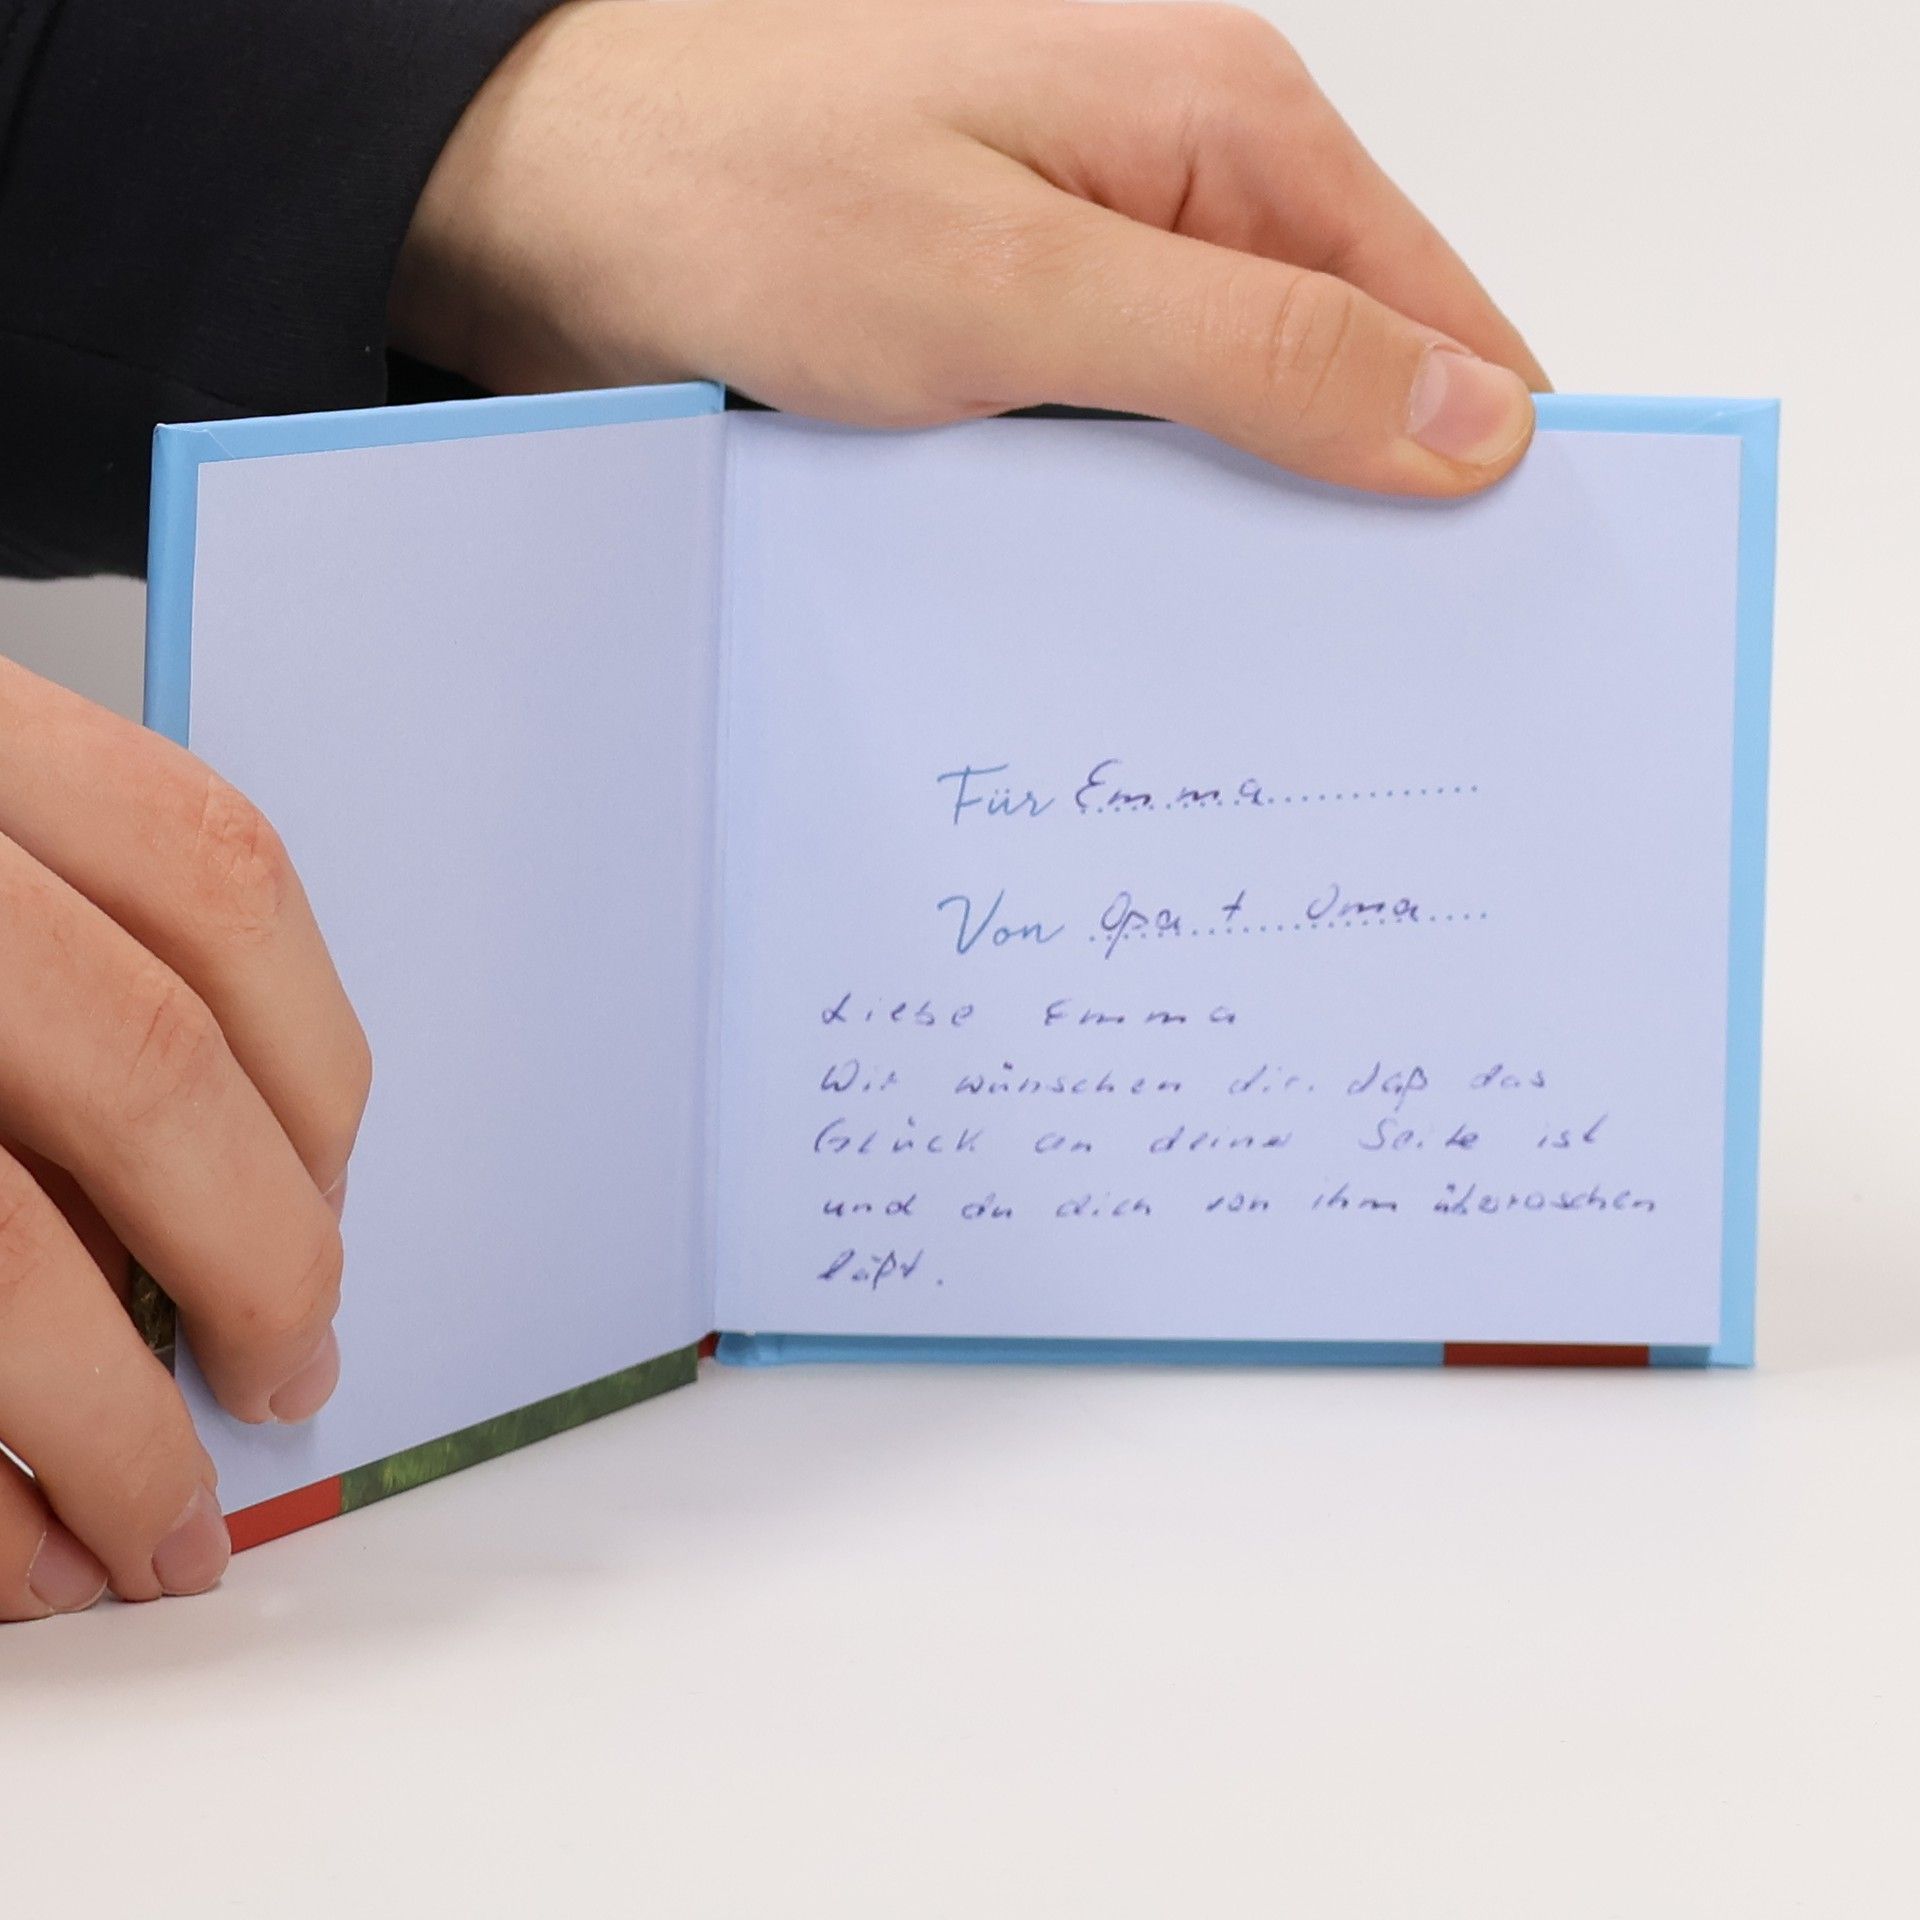 Für Emma
Von Opa + Oma
Liebe Emma
Wir wünschen dir. daß das
Glück an deiner Seite ist
und du dich von ihm überraschen
läßt.